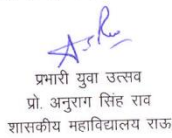 प्रभारी युवा उत्सव
प्रो. अनुराग सिंह राव
शासकीय महाविद्यालय राऊ